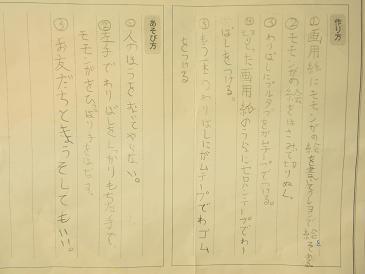 作り方
①画用紙にモモンガの絵を書いてクレヨンで絵をぬる
②モモンガの絵をはさみで切りぬく。
③わりばしにプルタブをガムテープでつける。
④切りとった画用紙のうらにセロハンテープでわり
ばしをつける。
⑤もう1本つわりばしにガムテープでわゴム
をつける
あそび方
①人のほうをむいてやらない。
②左手でわりばしをしっかりもち右手で、
モモンガをひっぱり手をはなす。
③お友だちときょうそしてもいい。